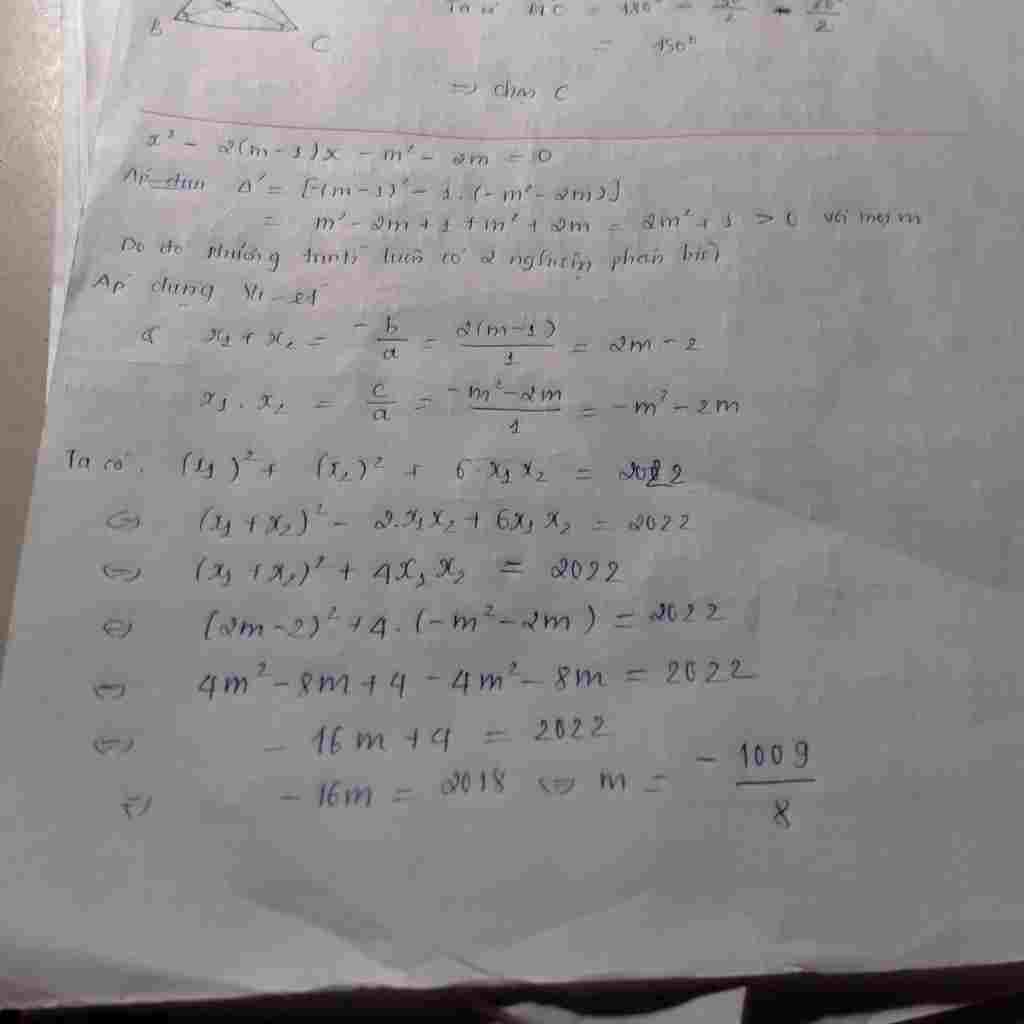 B
C
= 150°
=> chọn C
x² - 2(m-1)x - m² - 2m = 0
Δ' = [-(m-1)² - 1.(-m² - 2m)]
= m² - 2m + 1 + m² + 2m = 2m² + 1 > 0 với mọi m
Do đó phương trình luôn có 2 nghiệm phân biệt
Áp dụng Vi-et
x₁ + x₂ = -b/a = 2(m-1)/1 = 2m - 2
x₁.x₂ = c/a = -m²-2m/1 = -m² - 2m
Ta có. (x₁)² + (x₂)² + 6x₁x₂ = 2022
<=> (x₁ + x₂)² - 2.x₁x₂ + 6x₁x₂ = 2022
<=> (x₁ + x₂)² + 4x₁x₂ = 2022
<=> (2m-2)² + 4.(-m² - 2m) = 2022
<=> 4m² - 8m + 4 - 4m² - 8m = 2022
<=> -16m + 4 = 2022
<=> -16m = 2018 <=> m = -1009/8